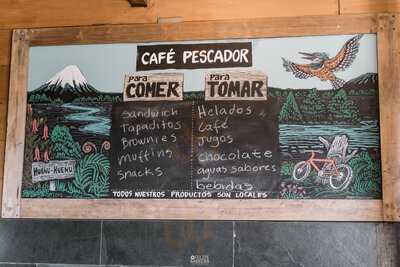 CAFÉ PESCADOR
Para
COMER
Sandwich
Tapaditos
Brownies
muffins
Snacks
Para
TOMAR
Helados
Café
Jugos
chocolate
aguas sabores
bebidas
HUEÑU-HUEÑU
TODOS NUESTROS PRODUCTOS SON LOCALES